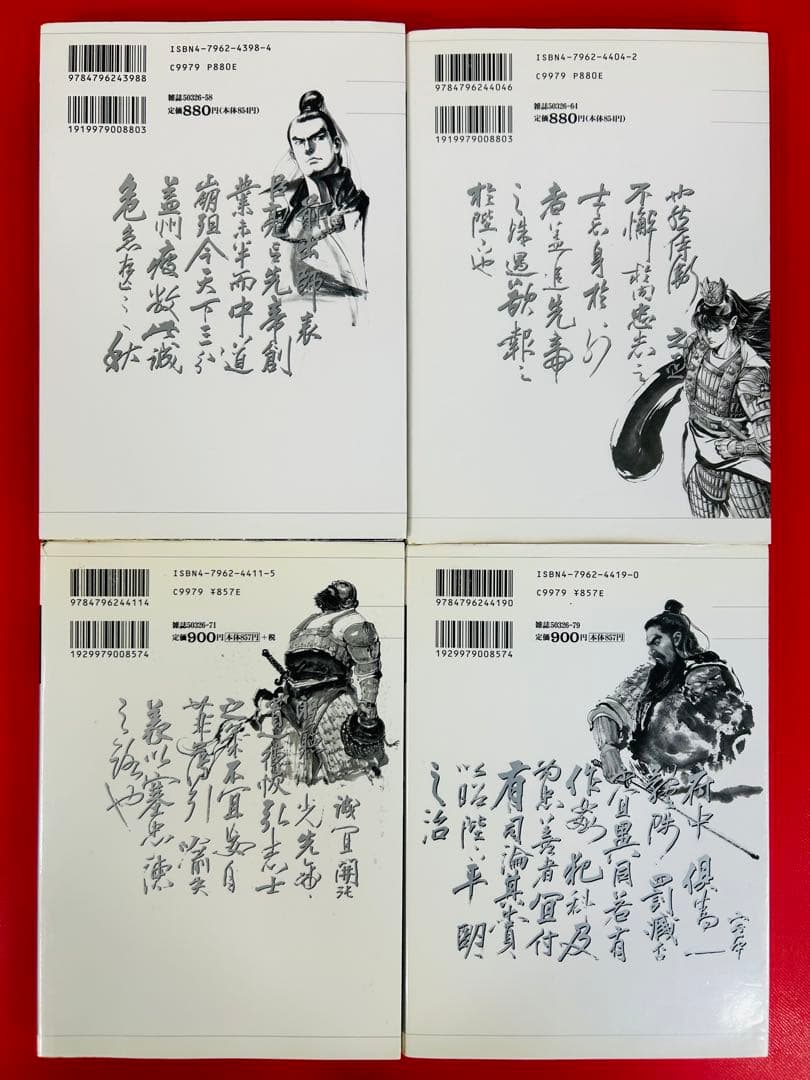 ISBN4-7962-4398-4
C9979 P880E
9784796243988
雑誌50326-58
定価880円(本体854円)
1919979008803
前出師表
臣亮言先帝創
業未半而中道
崩殂今天下三分
益州疲敝此誠
危急存亡之秋
ISBN4-7962-4404-2
C9979 P880E
9784796244046
雑誌50326-64
定価880円(本体854円)
1919979008803
也然侍衛之臣
不懈於内忠志之
士忘身於外
者蓋追先帝
之殊遇欲報之
於陛下也
ISBN4-7962-4411-5
C9979 ¥857E
9784796244114
雑誌50326-71
定価900円本体857円+税
1929979008574
誠宜開張
光先帝
遺德恢弘志士
之氣不宜妄自
菲薄引喻失
義以塞忠諫
之路也
ISBN4-7962-4419-0
C9979 ¥857E
9784796244190
雑誌50326-79
定価900円本体857円
1929979008574
宮中
府中俱為一
體陟罰臧否
不宜異同若有
作姦犯科及
為忠善者宜付
有司論其刑賞
以昭陛下平明
之治